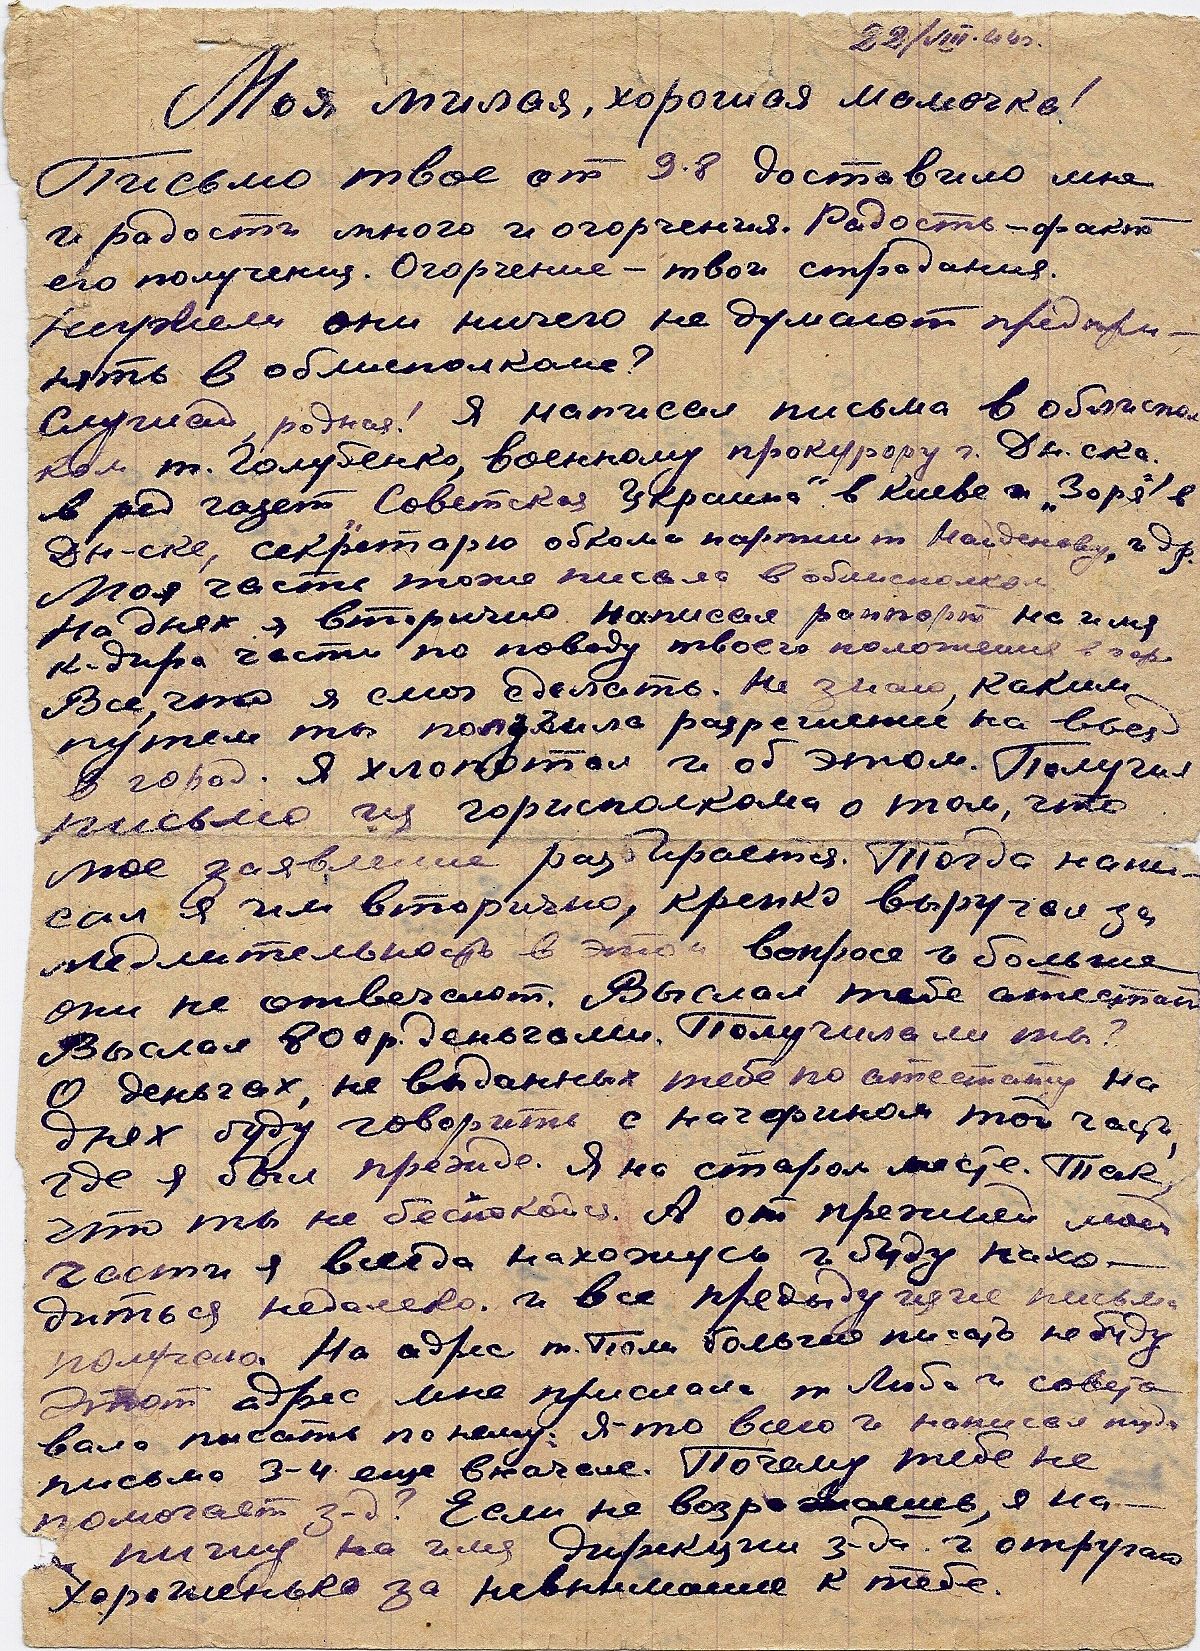 22/VIII.44г.
Моя милая, хорошая мамочка!
Письмо твое от 9.8 доставило мне
и радости много и огорчения. Радость – факт
его получения. Огорчение – твои страдания.
Неужели они ничего не думают предпри-
нять в облисполкоме?
Слушай, родная! Я написал письма в облиспол
ком т. Голубенко, военному прокурору г. Дн.ска.
в ред газет Советская Украина" в Киеве и „Зоря" в
Дн-ске, секретарю обкома партии т Найденову, и др.
Моя часть тоже писала в облисполком
На днях я вторично написал рапорт на имя
к-дира части по поводу твоего положения в гор.
Все, что я смог сделать. Не знаю, каким
путем ты получила разрешение на въезд
в город. Я хлопотал и об этом. Получил
письмо из горисполкома о том, что
мое заявление разбирается. Тогда напи-
сал я им вторично, крепко выругал за
медлительность в этом вопросе и больше
они не отвечают. Выслал тебе аттестат
Выслал 800р. деньгами. Получила ли ты?
О деньгах, не выданных тебе по атестату на
днях буду говорить с начфином той части,
где я был прежде. Я на старом месте. Так,
что ты не беспокойся. А от прежней моей
части я всегда нахожусь и буду нахо-
диться недалеко. и все предыдущие письма
получаю. На адрес т. Поли больше писать не буду
Этот адрес мне прислала т Люба и совето
вала писать по нему. Я-то всего и написал туда
письма 3-4 еще вначале. Почему тебе не
помогает з-д? Если не возражаешь, я на-
пишу на имя дирекции з-да. и отругаю
хорошенько за невнимание к тебе.